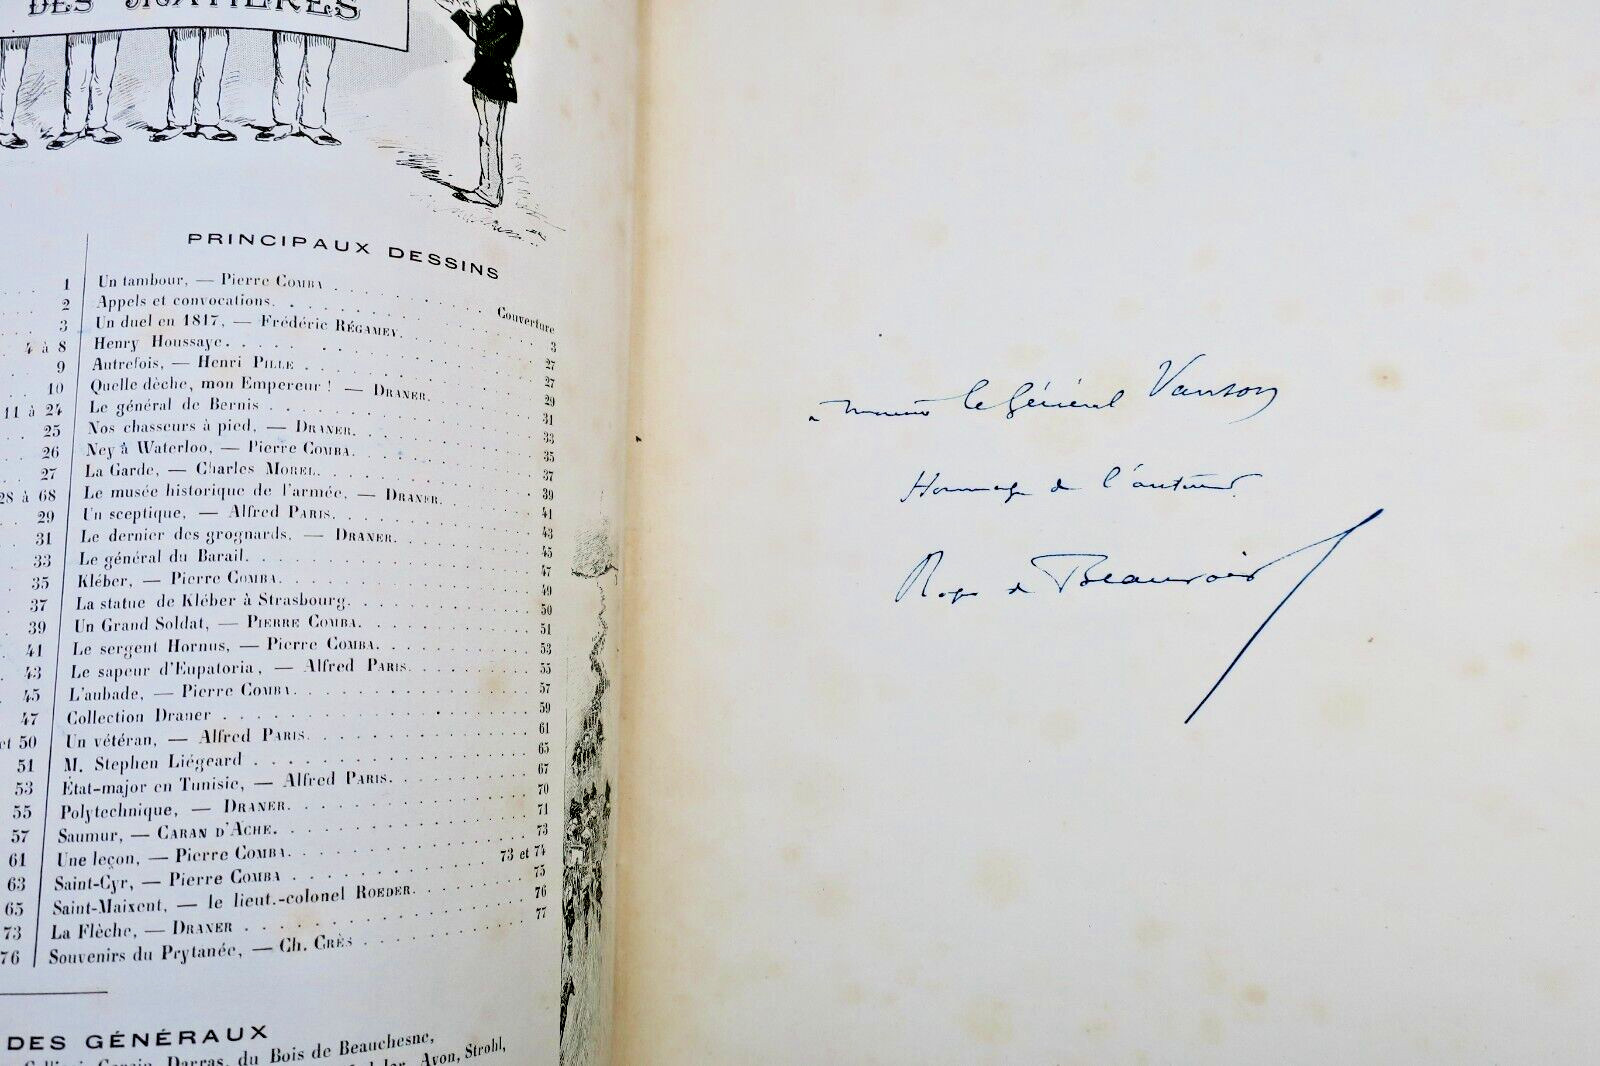 DES MATIÈRES
PRINCIPAUX DESSINS
1 Un tambour, — Pierre COMBA . . . . Couverture
2 Appels et convocations. . . . 3
3 Un duel en 1817, — Frédéric RÉGAMEY. . . . 27
4 à 8 Henry Houssaye. . . . 27
9 Autrefois, — Henri PILLE . . . . 29
10 Quelle dèche, mon Empereur ! — DRANER. . . . 31
11 à 24 Le général de Bernis . . . . 33
25 Nos chasseurs à pied, — DRANER. . . . 35
26 Ney à Waterloo, — Pierre COMBA. . . . 37
27 La Garde, — Charles MOREL. . . . 39
28 à 68 Le musée historique de l'armée, — DRANER. . . . 41
29 Un sceptique, — Alfred PARIS. . . . 43
31 Le dernier des grognards, — DRANER. . . . 45
33 Le général du Barail. . . . 47
35 Kléber, — Pierre COMBA. . . . 49
37 La statue de Kléber à Strasbourg. . . . 50
39 Un Grand Soldat, — PIERRE COMBA. . . . 51
41 Le sergent Hornus, — Pierre COMBA. . . . 53
43 Le sapeur d'Eupatoria, — Alfred PARIS. . . . 55
45 L'aubade, — Pierre COMBA. . . . 57
47 Collection Draner . . . . 59
et 50 Un vétéran, — Alfred PARIS. . . . 61
51 M. Stephen Liégeard . . . . 65
53 État-major en Tunisie, — Alfred PARIS. . . . 67
55 Polytechnique, — DRANER. . . . 70
57 Saumur, — CARAN D'ACHE. . . . 71
61 Une leçon, — Pierre COMBA. . . . 73
63 Saint-Cyr, — Pierre COMBA . . . . 73 et 74
65 Saint-Maixent, — le lieut.-colonel ROEDER. . . . 75
73 La Flèche, — DRANER . . . . 76
76 Souvenirs du Prytanée, — Ch. CRÈS . . . . 77
DES GÉNÉRAUX
Darras, du Bois de Beauchesne,
Avon, Strohl,
le Général Vanson
Hommage de l'auteur
Roger de Beauvoir